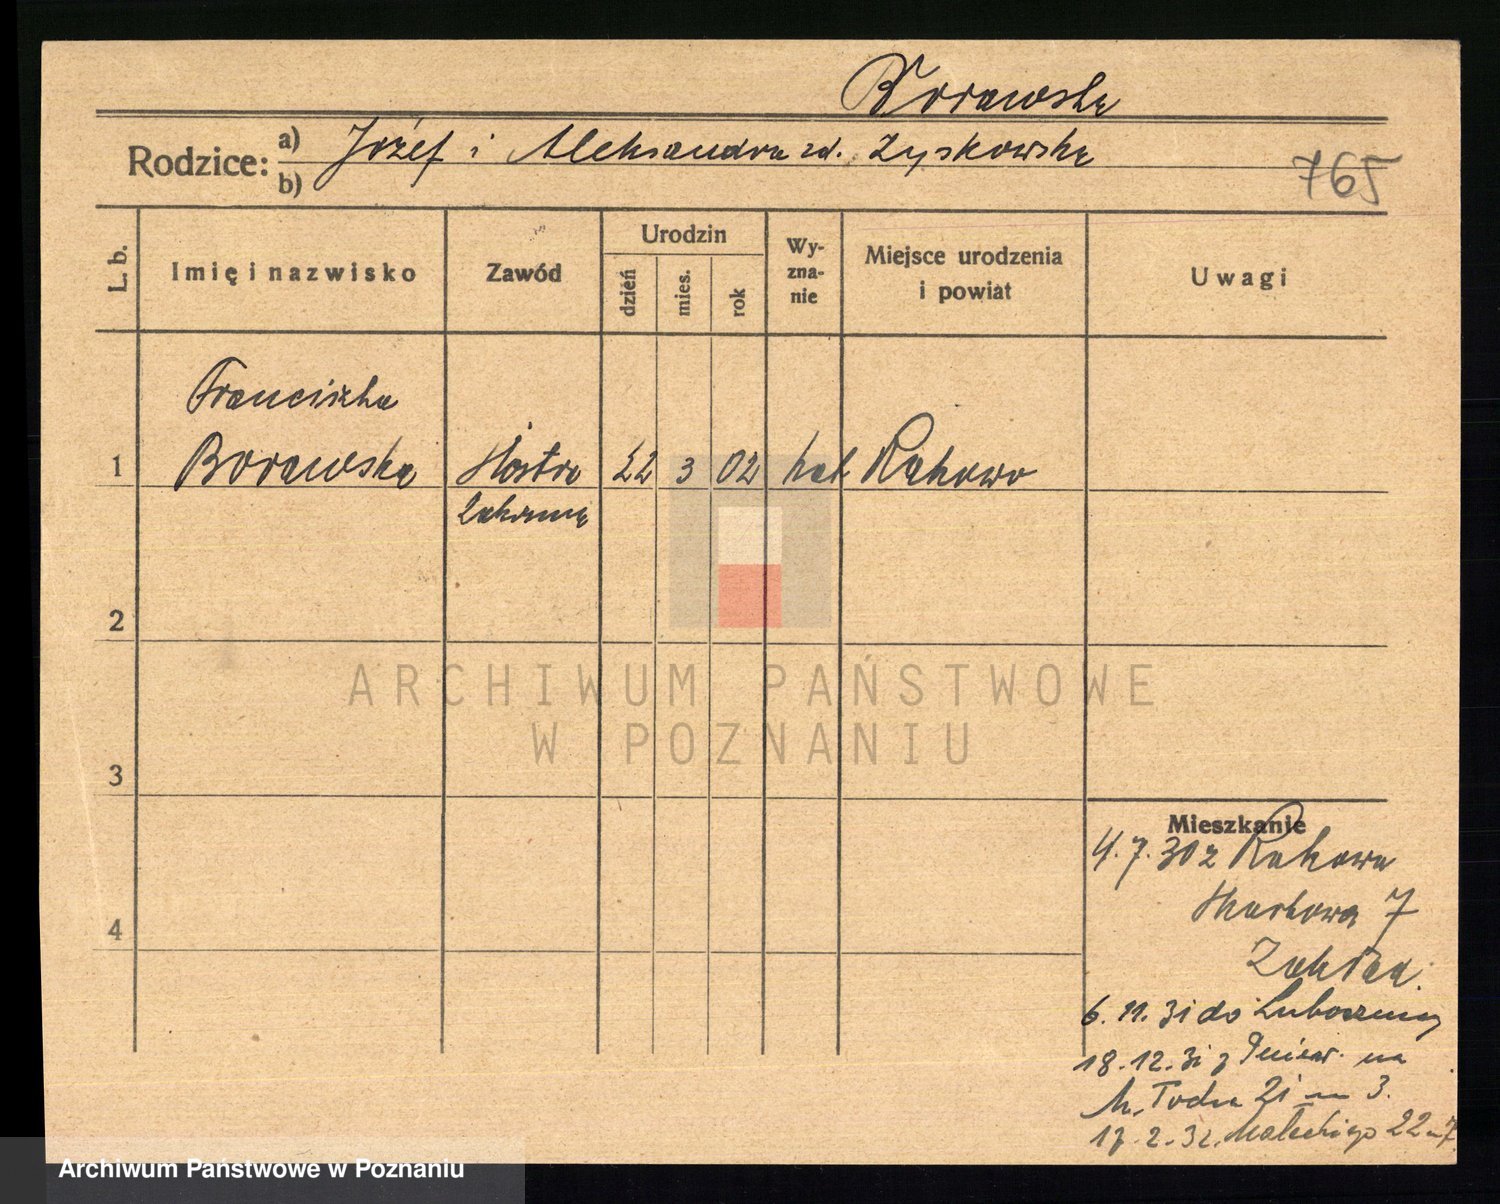 Borawska
Rodzice: a) Józef i Aleksandra zd. Zyskowska
b)
765
L. b.
Imię i nazwisko
Zawód
Urodzin
dzień
mies.
rok
Wy-
zna-
nie
Miejsce urodzenia
i powiat
Uwagi
Franciszka
1 Borawska Siostra 22 3 02 kat Rakowo
zakonna
2
3
4
ARCHIWUM PAŃSTWOWE
W POZNANIU
Mieszkanie
4.7.30 z Rakowa
7
6.11.31 do
18.12.31 z Pniew na
21 m 3.
17.2.32. Małeckiego 22 m 7
Archiwum Państwowe w Poznaniu